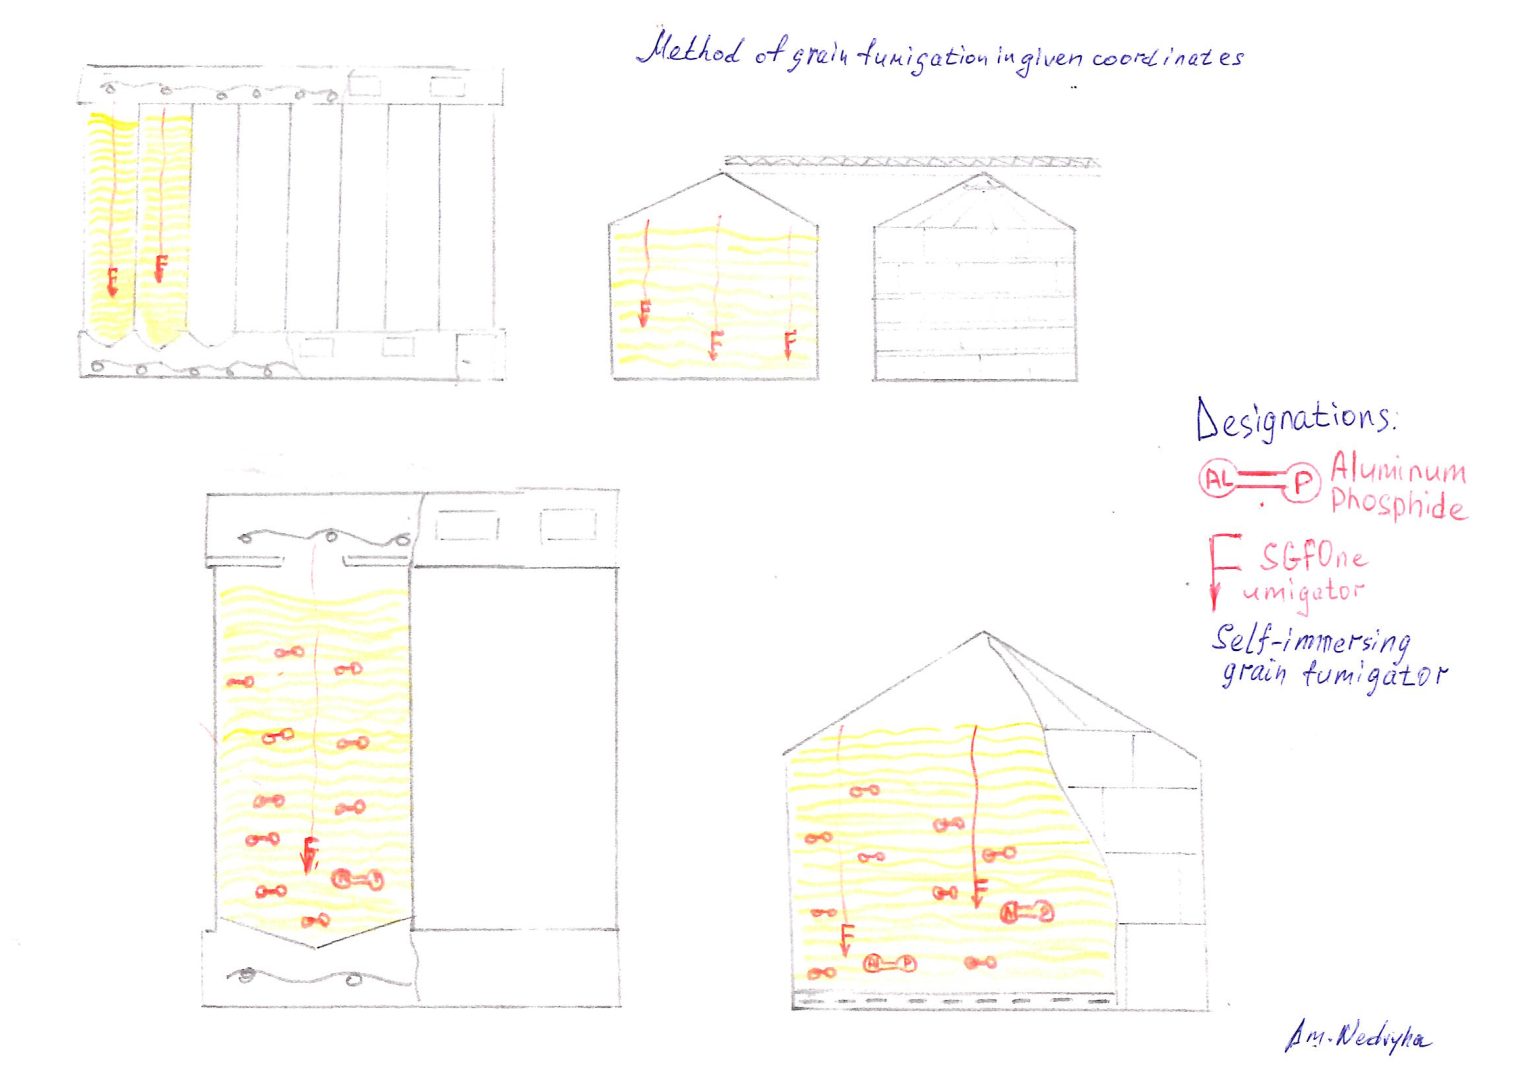 Method of grain fumigation in given coordinates
F F
F F F
Designations:
AL P Aluminum
Phosphide
F SGfOne
umigator
Self-immersing
grain fumigator
F
F
F
AL P